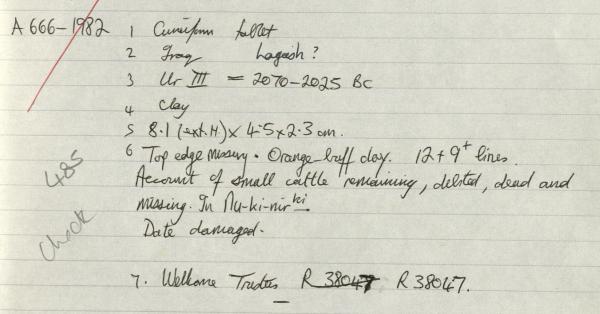 A 666-1982 1 Cuneiform tablet
2 Iraq Lagash?
3 Ur III = 2070-2025 BC
4 Clay
5 8.1 (ext. H.) x 4.5 x 2.3 cm.
6 Top edge missing. Orange-buff clay. 12 + 9+ lines.
Account of small cattle remaining, debited, dead and
missing. In Nu-ki-nir ki
Date damaged.
485
check
7. Wellcome Trustees R 38047 R 38047.